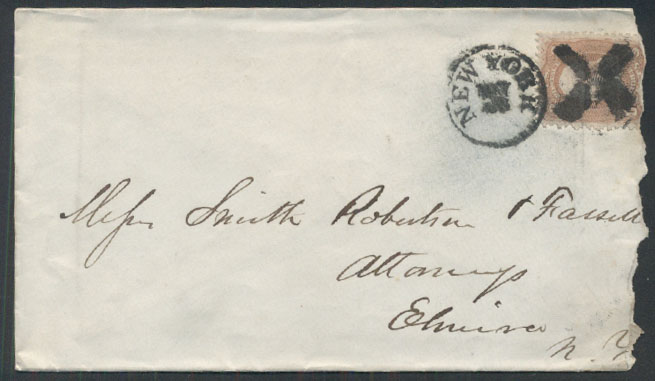 NEW YORK
Messrs Smith Robertson & Fassett
Attorneys
Elmira
N.Y.